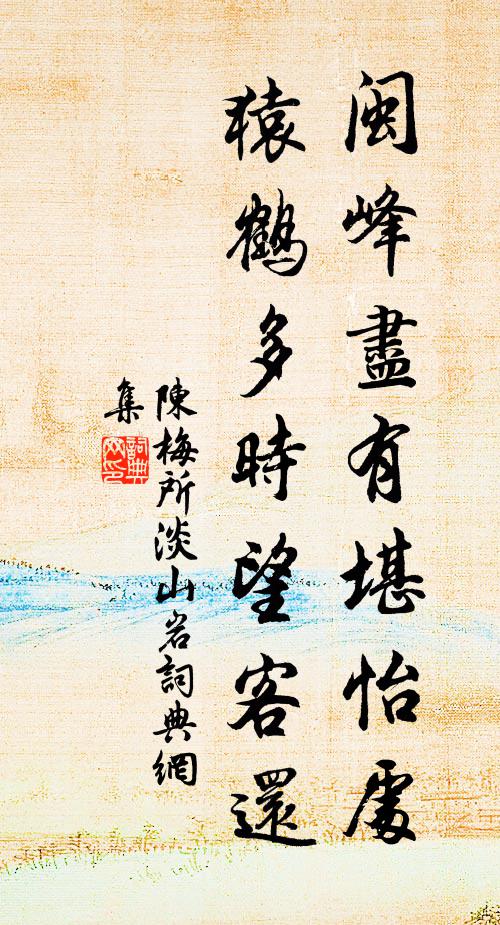 閩峰盡有堪怡處
猿鶴多時望客還
陳梅所淡山岩詞典網
集
詞典
网印